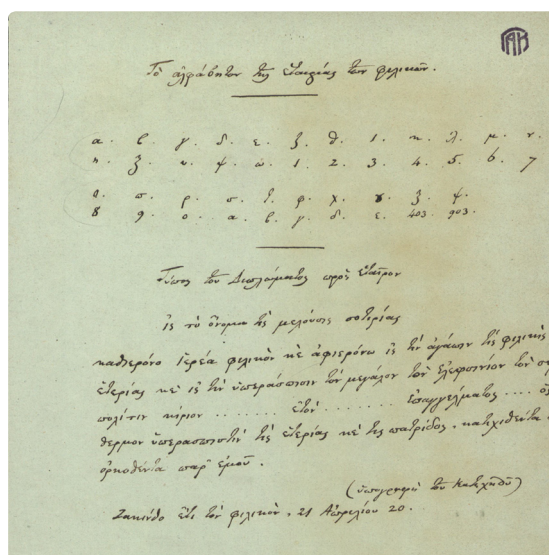 Τὸ ἀλφάβητον τῆς Ἑταιρίας τῶν φιλικῶν.
α. β. γ. δ. ε. ζ. θ. ι. κ. λ. μ. ν.
η. ξ. υ. ψ. ω. 1. 2. 3. 4. 5. 6. 7
ο. π. ρ. σ. τ. φ. χ. ξ. ψ.
8 9. ο. α. β. γ. δ. ε. 403. 903.
Τύπος τοῦ Διπλώματος πρὸς Ἑταῖρον
ἰς τὸ ὄνομα τῆς μελούσης σοτερίας
καθιερόνο ἱερέα φιλικὸν κὲ ἀφιερόνω ἰς τὴν ἀγάπην τῆς φιλικῆς
ἑτερίας κὲ ἰς τὴν ὑπεράσπισιν τὸν μεγάλον τὸν ἐλεφσινίον τὸν
πολίτιν κύριον ........ ἐτὸν ........ ἐπαγγέλματος ....
θερμον ὑπερασπιστὴν τῆς ἑτερίας κὲ τῆς πατρίδος. κατιχιθέντα
ὁρκοθέντα παρ' ἐμοῦ.
(ὑπογραφὴ τοῦ Κατηχητοῦ)
Ζακίνθο ἔτι τὸν φιλικὸν. 21 Ἀπριλίου 20.